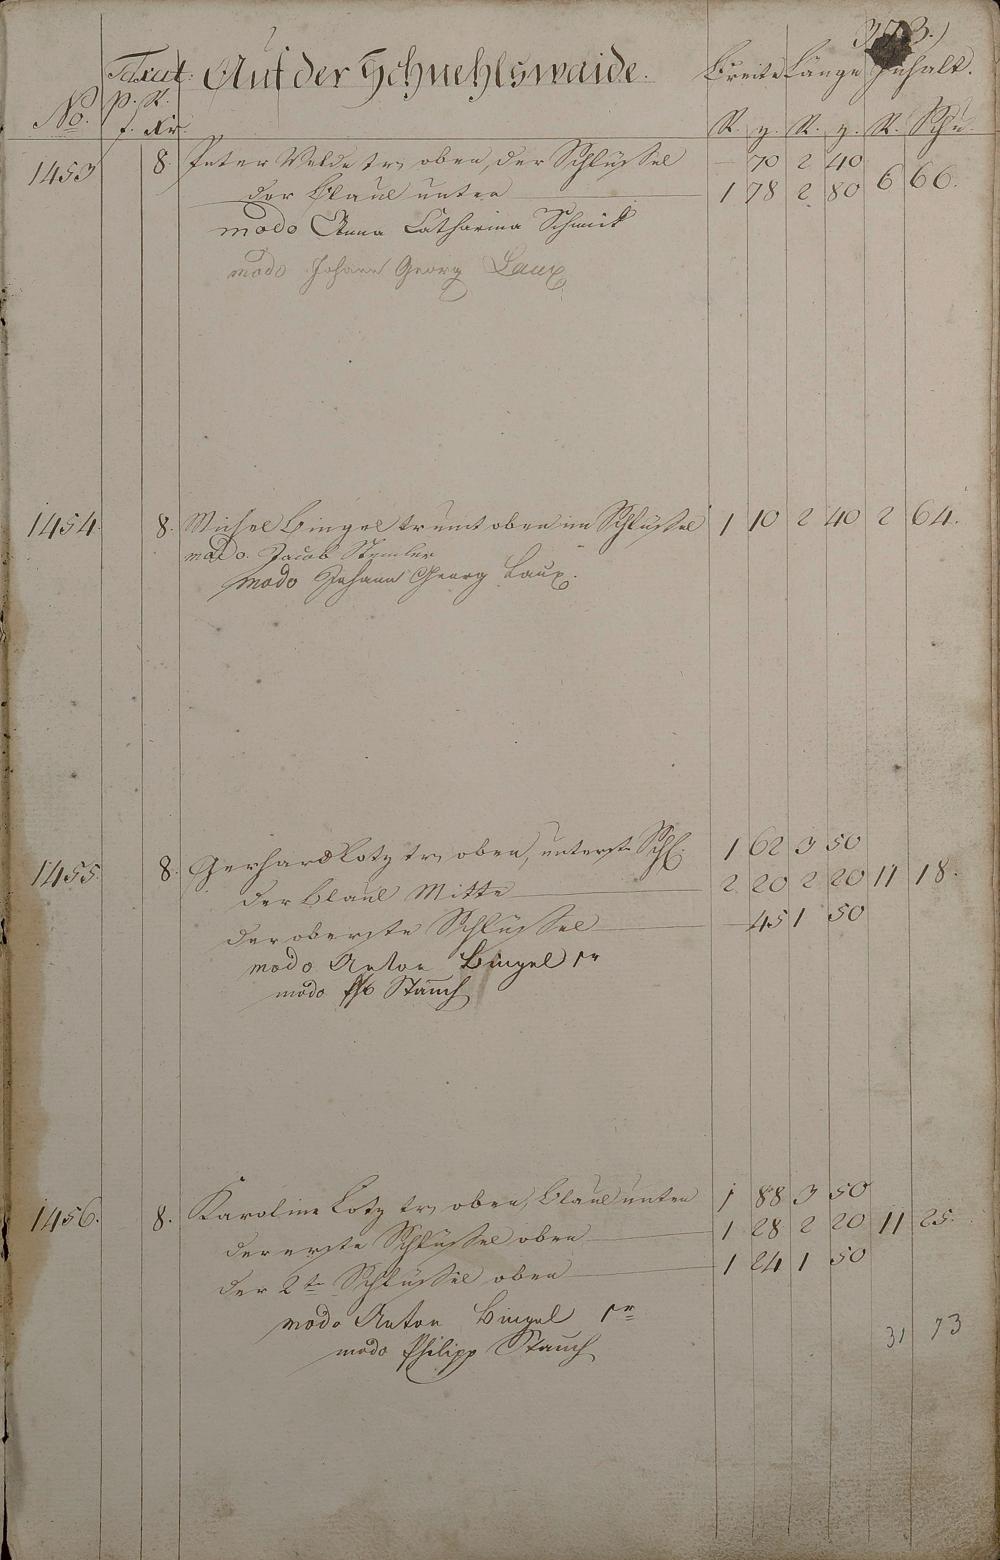 373.)
Taxat: Auf der Schuehlswaide. Breite Länge Inhalt.
No. p. R. f. Kr. R. z. R. z. R. Schu.
1453 8. Peter Velde tr, oben, der Schlüssel — 70 2 40
der Blaul unten 1 78 2 80 6 66.
modo Anna Catharina Schmidt
modo Johann Georg Laux
1454. 8. Michel Bingel trumt oben im Schlüssel 1 10 2 40 2 64.
modo. Jacob Stemler
modo Johann Georg Laux.
1455. 8. Gerhard Lotz tr, oben, unterste Schl. 1 62 3 50
der Blaul Mitte 2 20 2 20 11 18.
der oberste Schlüssel — 45 1 50
modo Anton Bingel sr
modo Ph Stauch
1456. 8. Karoline Lotz tr, oben, Blaul unten 1 88 3 50
der erste Schlüssel oben 1 28 2 20 11 25.
der 2te Schlüssel oben 1 24 1 50
modo Anton Bingel sr
modo Philipp Stauch
31 73